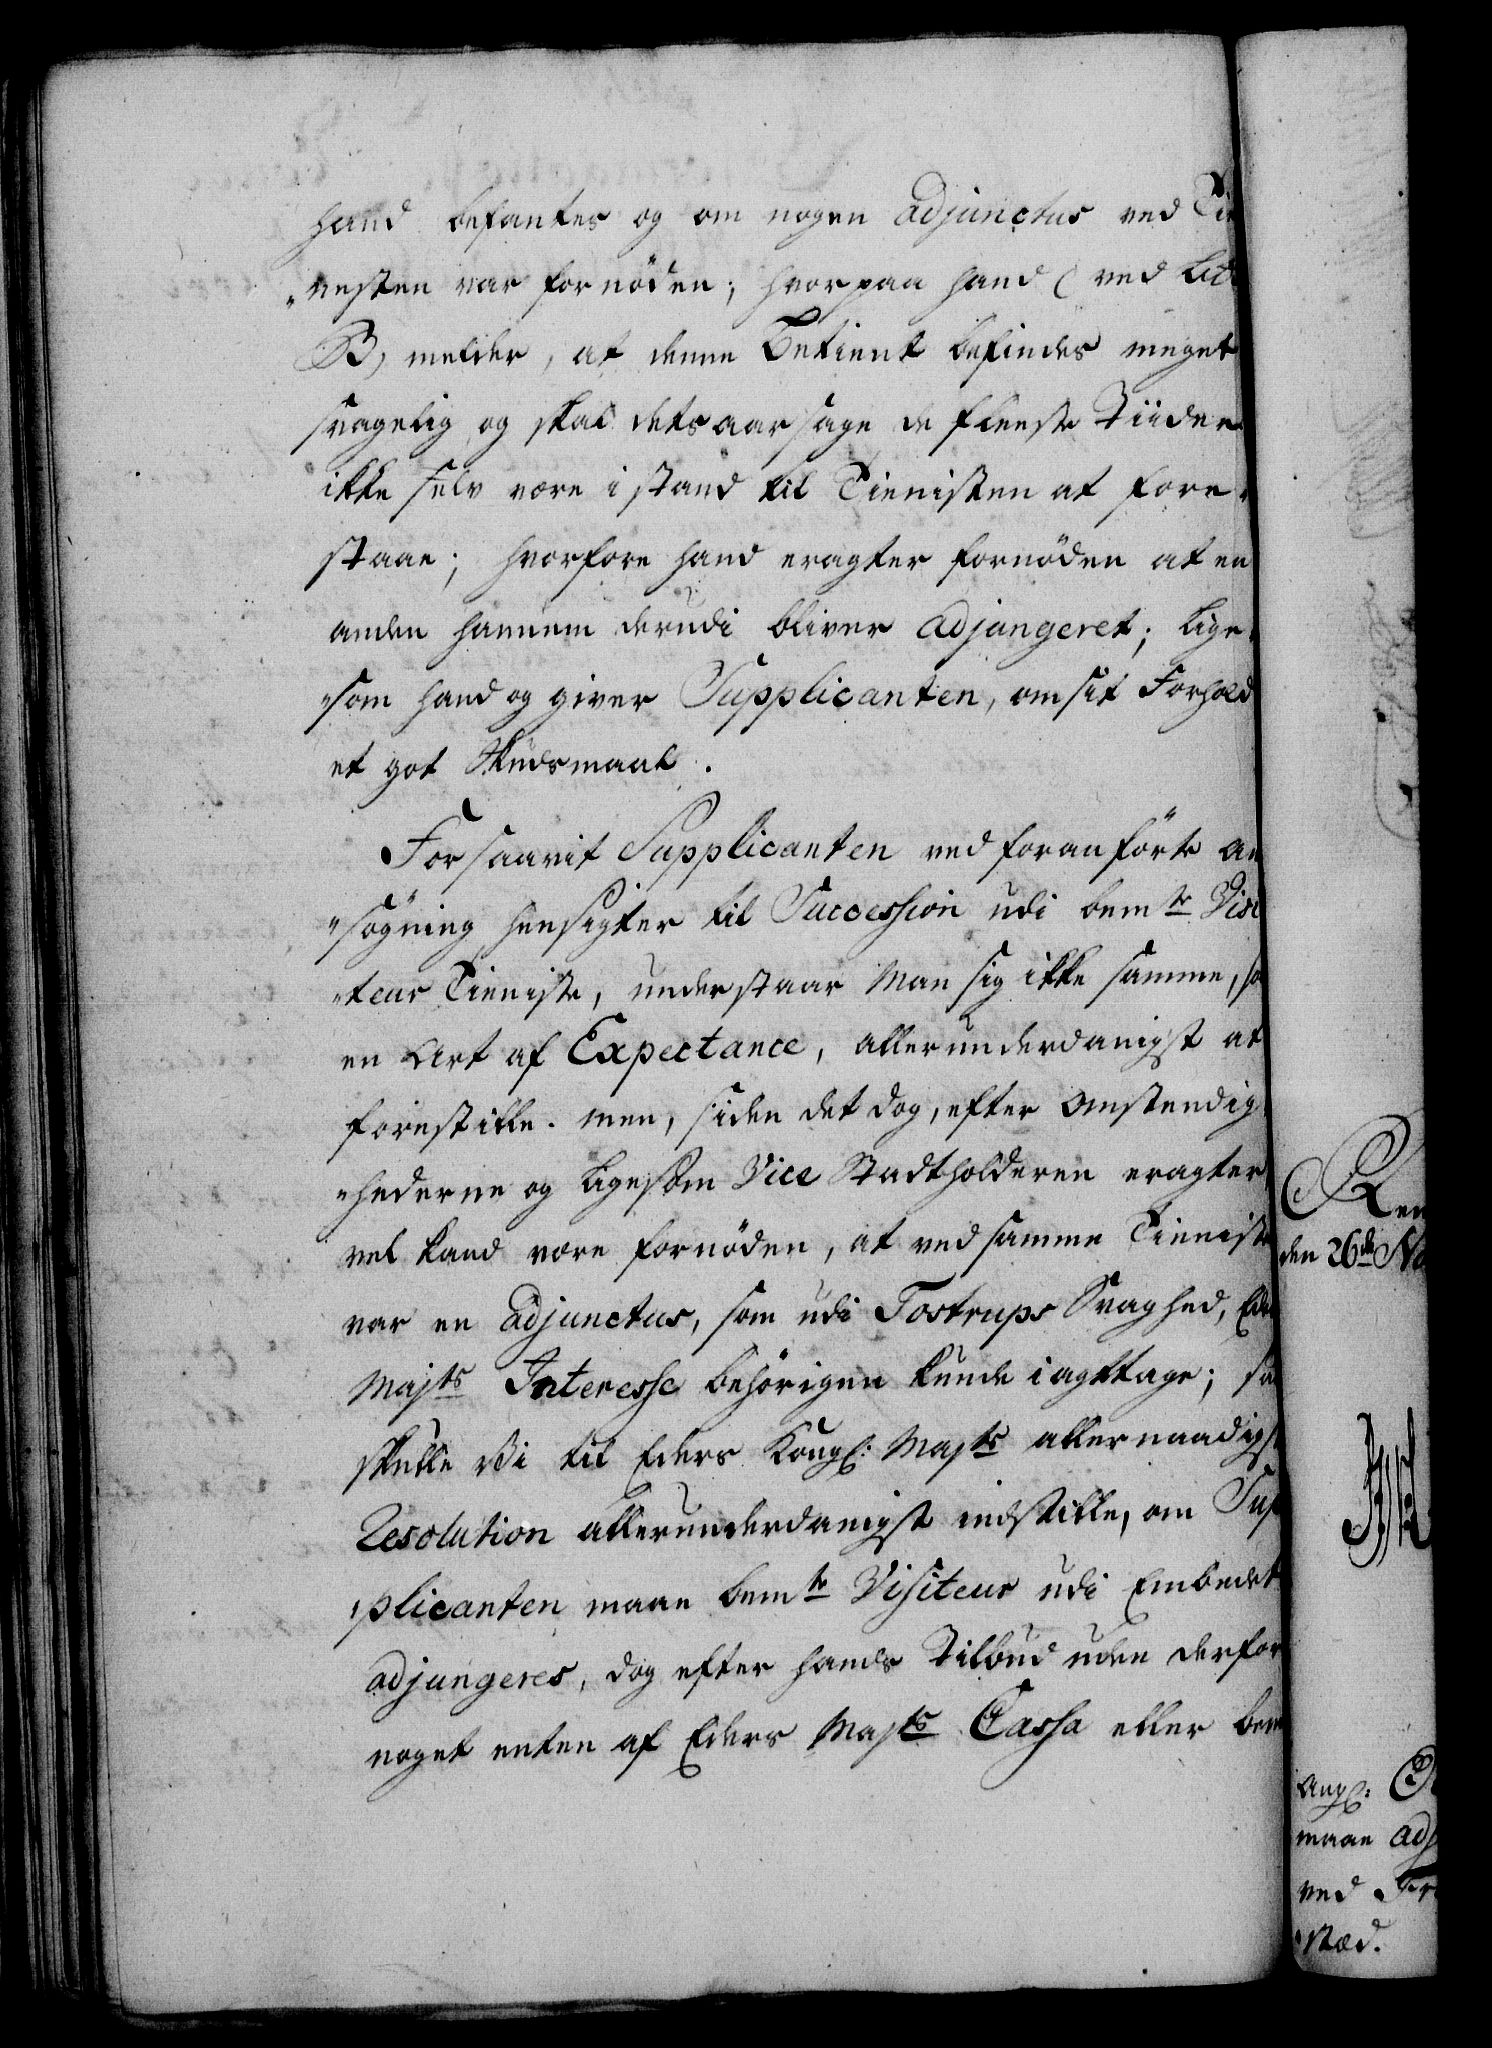 hand befantes og om nogen adjunctus ved Tie
„nesten var fornöden; hvorpaa hand (ved Lit
B) melder, at denne Betient befindes meget
svagelig og skal detsaarsage de fleeste Tiider
ikke selv være i stand til Tienisten at fore„
staae; hvorfore hand eragter fornöden at en
anden hannem derudi bliver adjungeret; lige„
„som hand og giver Supplicanten, om sit Forhold
et got Skudsmaal.
Forsaavit Supplicanten ved foranförte An
„sögning hensigter til Succession udi bemte Visi
„teur Tieniste, understaar Man sig ikke samme, so
en Art af Expectance, allerunderdanigst at
forestille. men, siden det dog, efter Omstendig„
„hederne og ligesom Vice Stadtholderen eragter
vel kand være fornöden, at ved samme Tieniste
var en adjunctus, som udi Tostrups Svaghed, Ede
Majts Interesse behörigen kunde iagttage; saa
skulle Vi til Eders Kongl: Majts allernaadigst
Resolution allerunderdanigst indstille, om Sup
„plicanten maae bemte Visiteur udi Embedet
adjungeres, dog efter hands Tilbud uden derfor
noget enten af Eders Majts Cassa eller bem
Ren
den 26de No
Angl:
maae adj
ved Fr
„stæd.